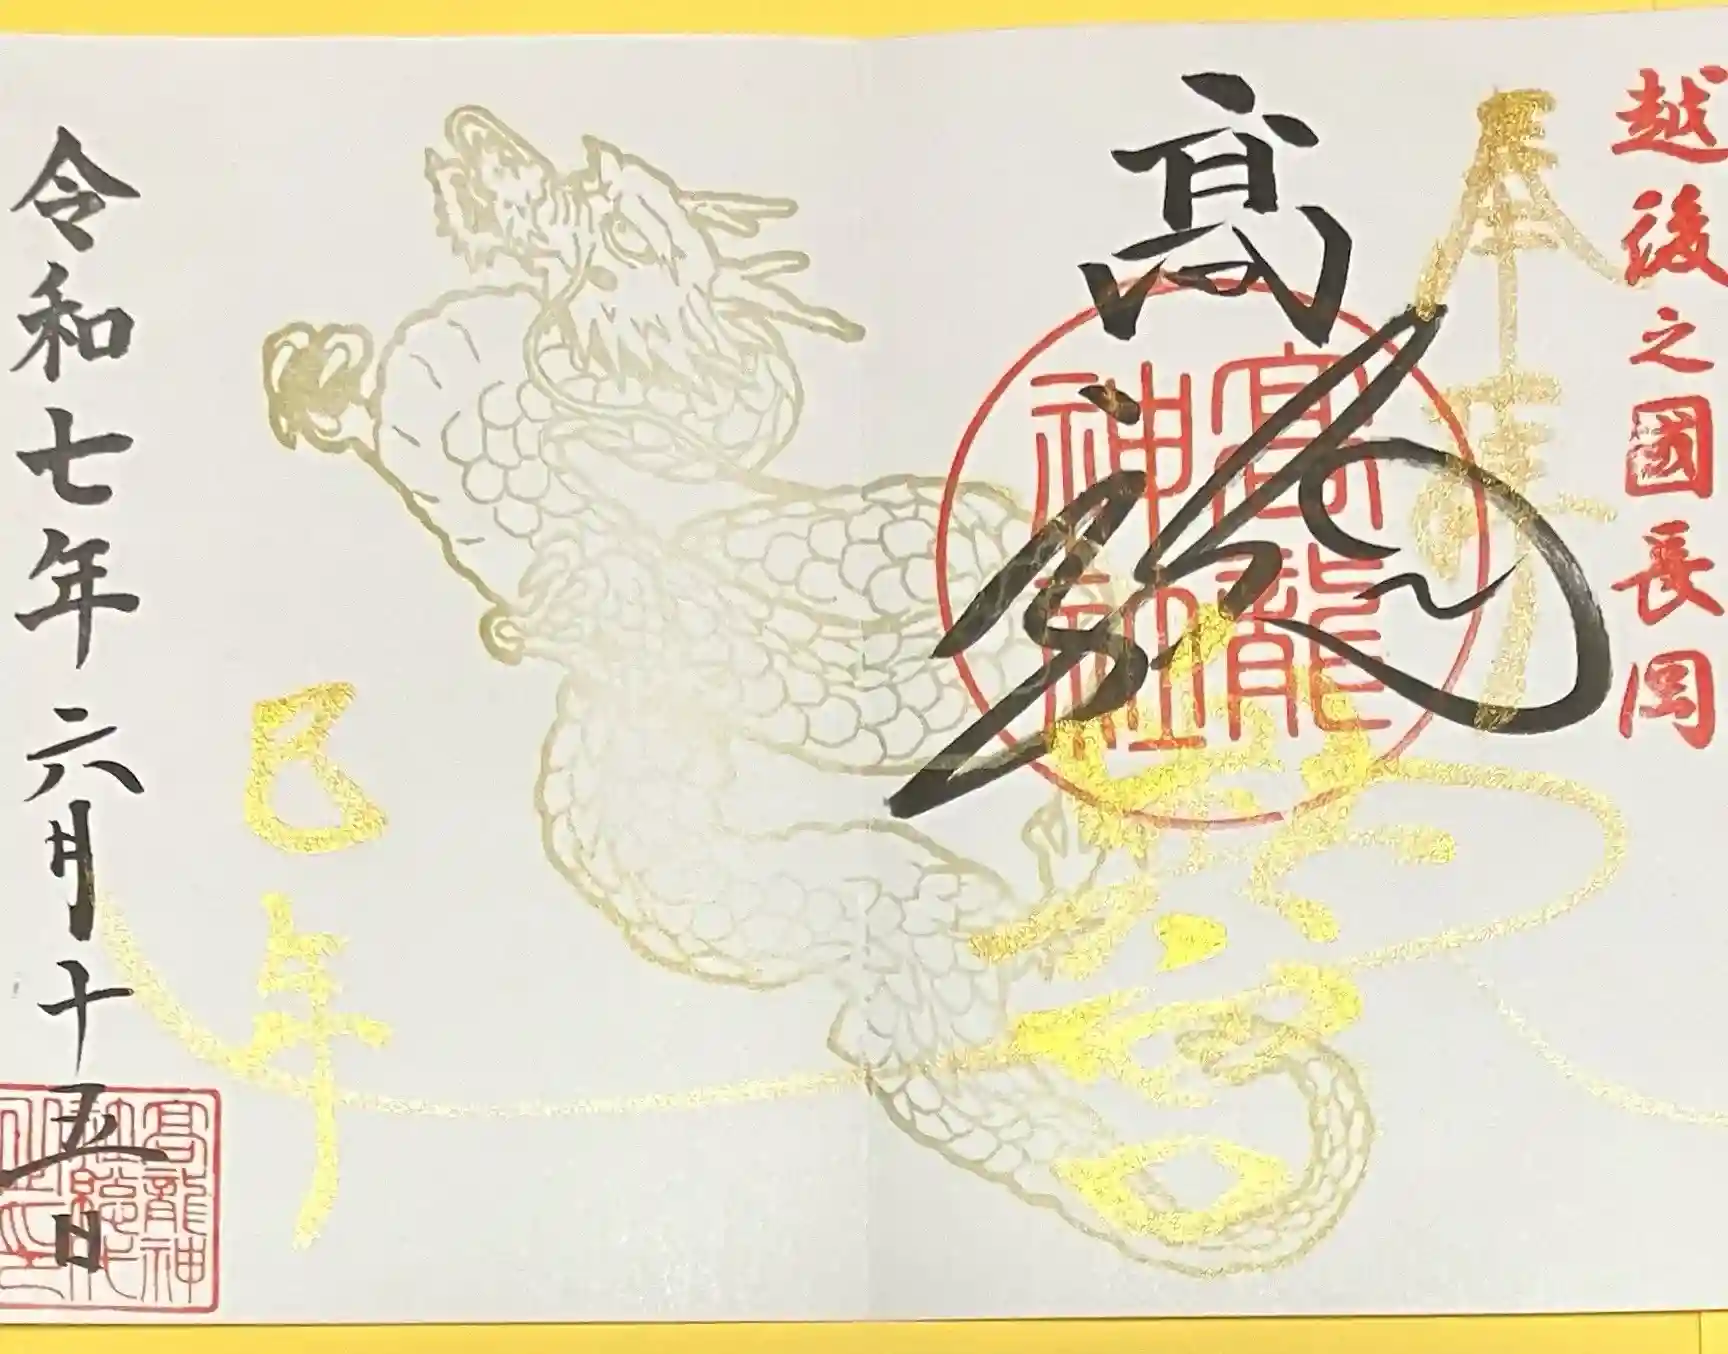 越後之國長岡
奉拝
高龍
高龍
神社
巳年
令和七年六月十五日
高龍神
社総代